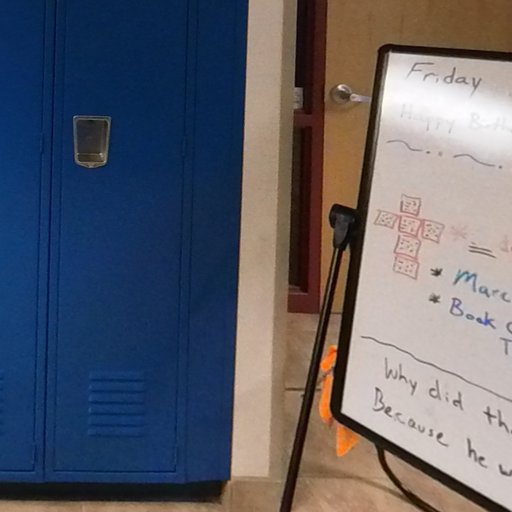 Friday
Happy Birth
* Marc
* Book
T
Why did th
Because he w